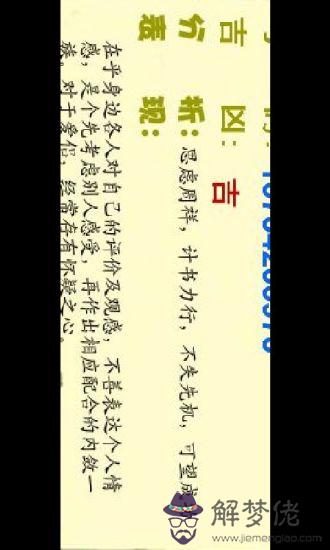 吉凶：吉
分析：思虑周祥，计书力行，不失先机，可望成
表现：
在乎身边各人对自己的评价及观感，不善表达个人情
感，是个先考虑别人感受，再作出相应配合的内敛一
族。对于爱侣，经常存有怀疑之心。
解梦佬
www.jiemenglao.com